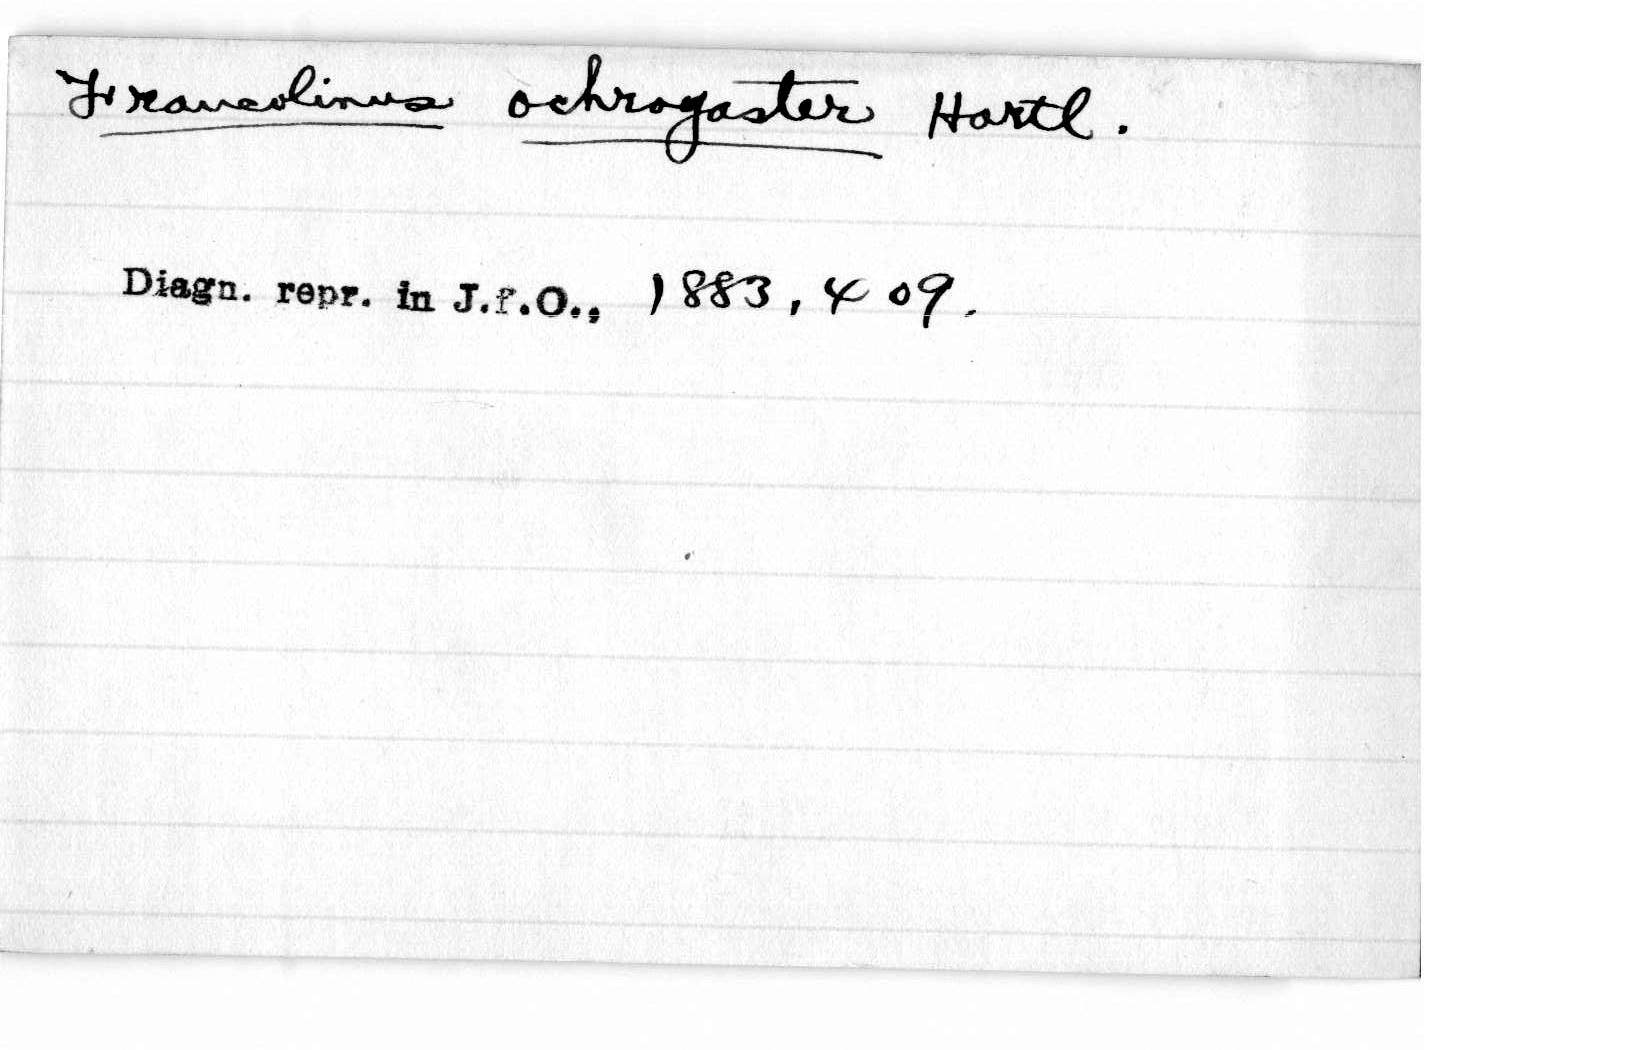 Francolinus ochrogaster Hartl.
Diagn. repr. in J.f.O., 1883, 409.